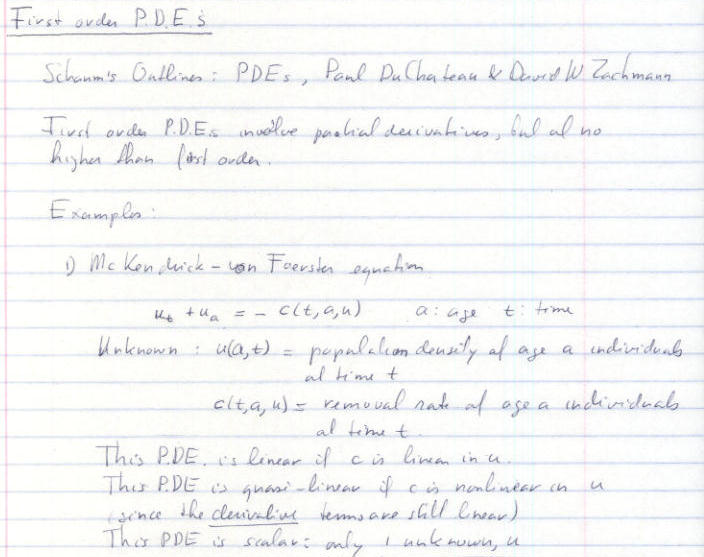 First order P.D.E.s
Schaum's Outlines: PDEs, Paul DuChateau & David W Zachmann
First order P.D.Es involve partial derivatives, but of no
higher than first order.
Examples:
1) McKendrick - von Foerster equation
u_t + u_a = - c(t,a,u)  a: age  t: time
Unknown: u(a,t) = population density of age a individuals
at time t
c(t,a,u) = removal rate of age a individuals
at time t.
This P.DE. is linear if c is linear in u.
This P.DE is quasi-linear if c is nonlinear in u
(since the derivative terms are still linear)
This PDE is scalar: only 1 unknown, u